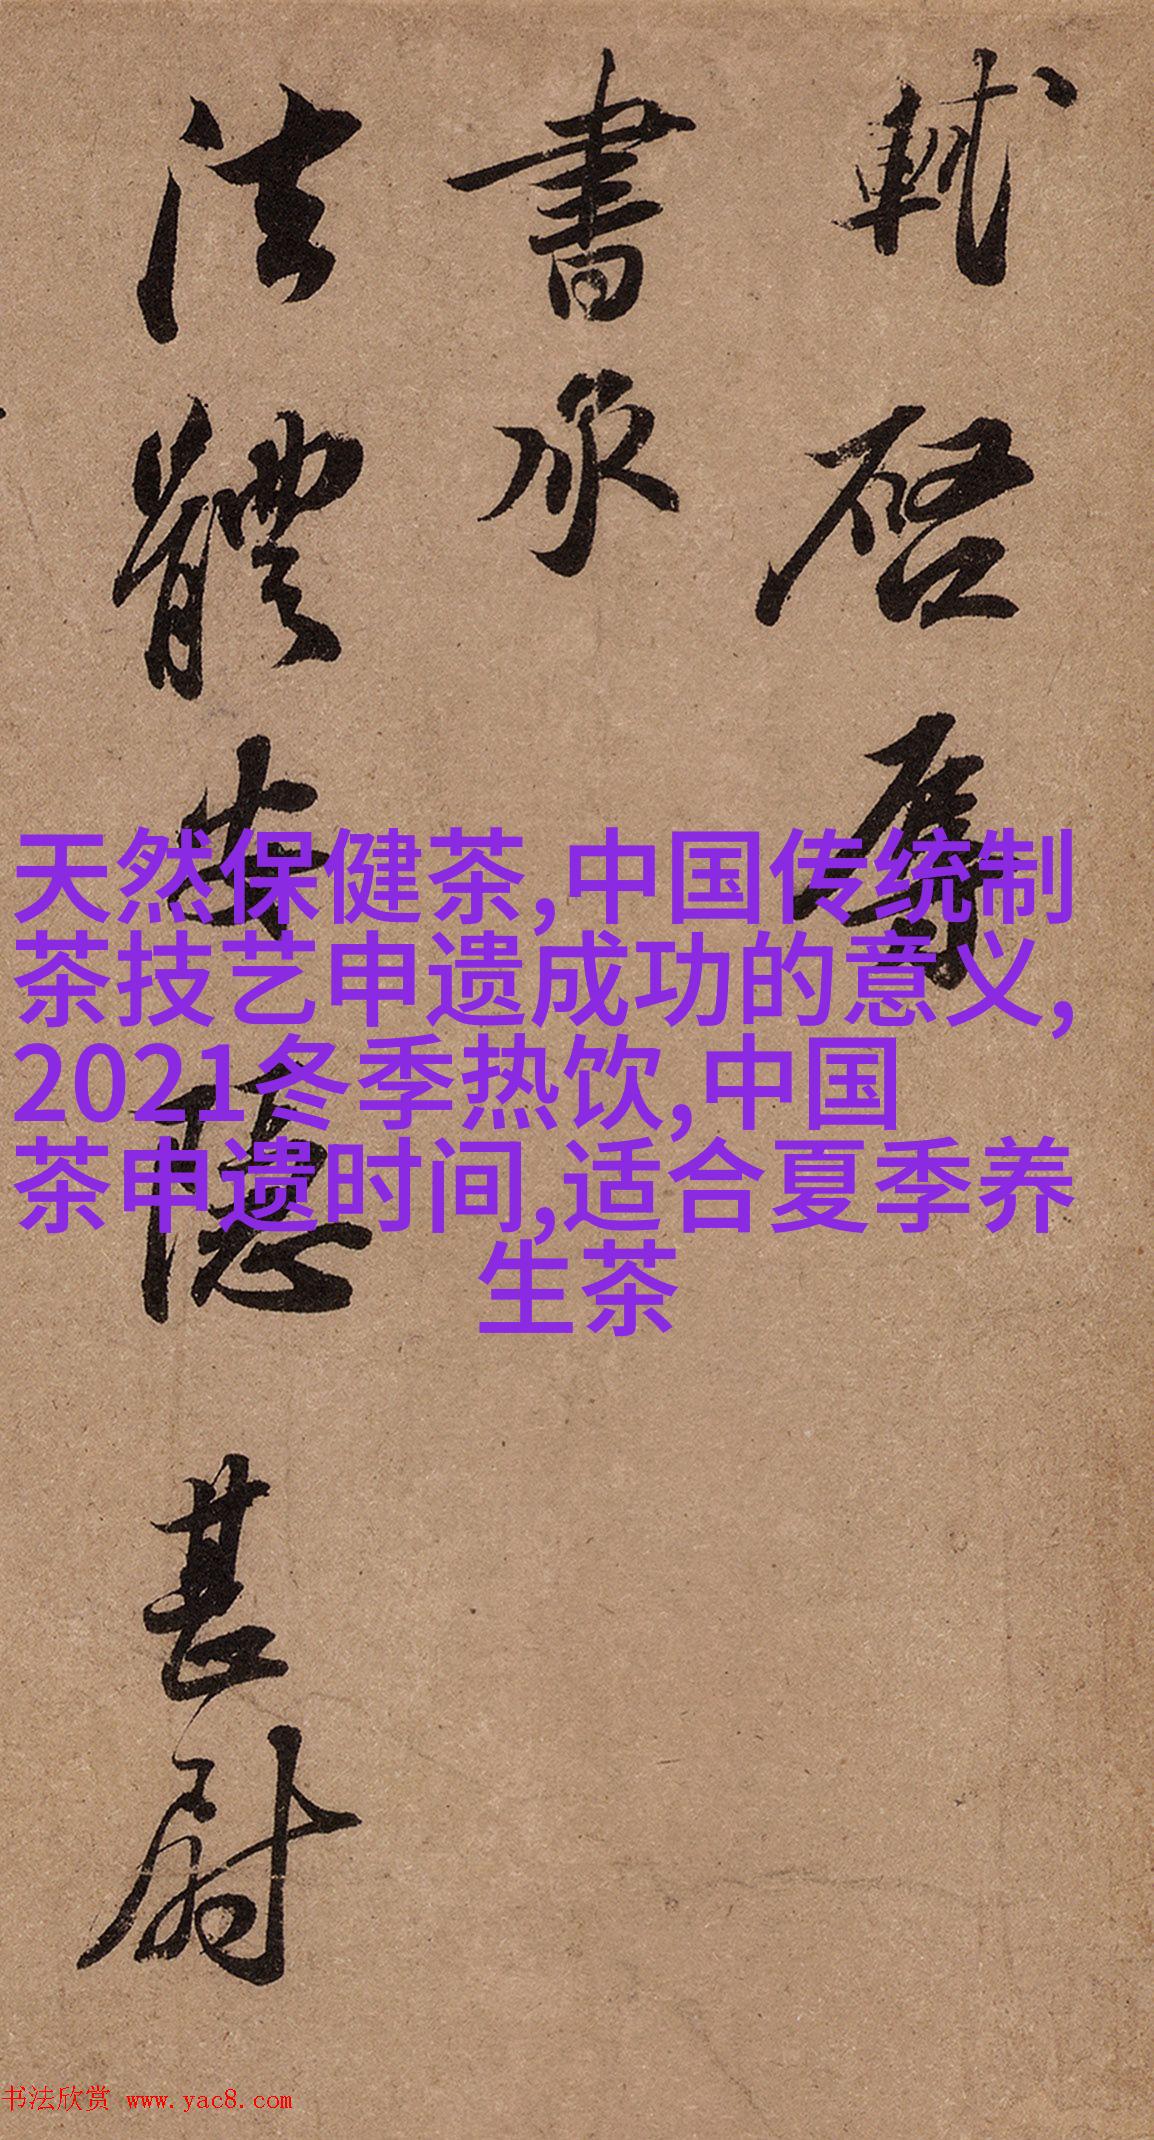 軾啓辱
書承
法體安隱甚慰
天然保健茶,中国传统制
茶技艺申遗成功的意义,
2021冬季热饮,中国
茶申遗时间,适合夏季养
生茶
书法欣赏 www.yac8.com